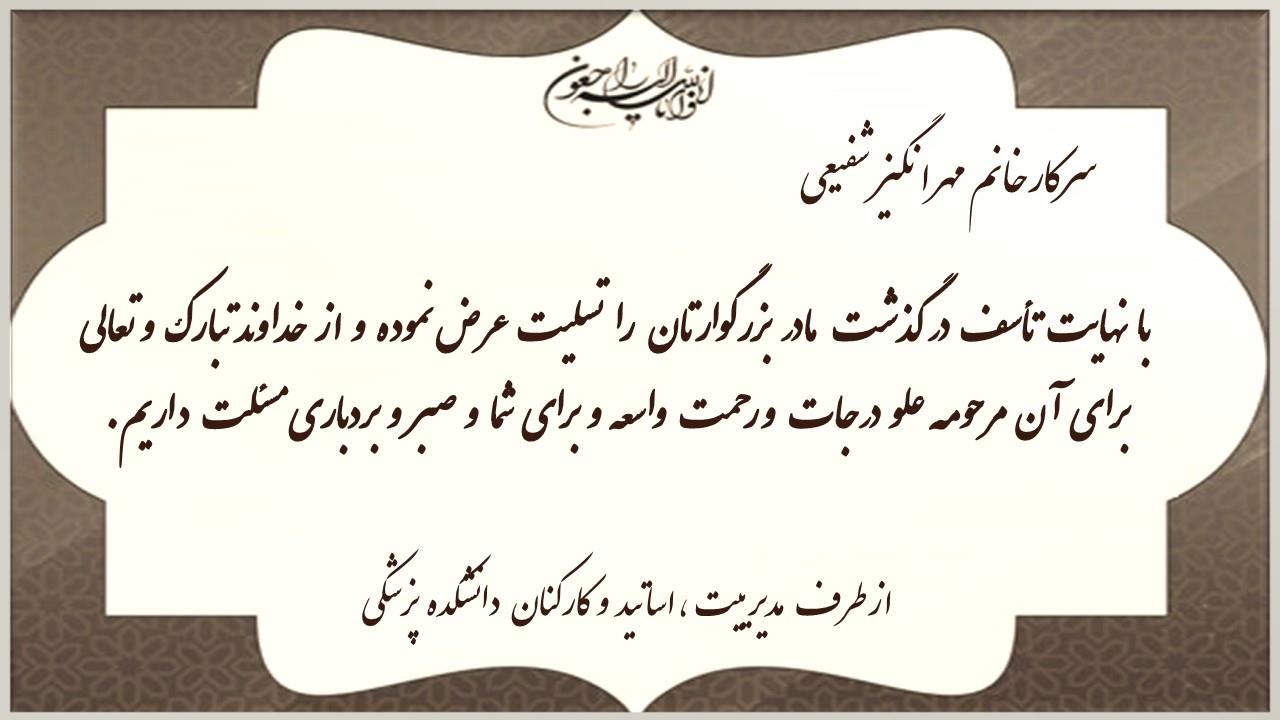 انا لله و انا الیه راجعون
سرکار خانم مهرانگیز شفیعی
با نهایت تأسف درگذشت مادر بزرگوارتان را تسلیت عرض نموده و از خداوند تبارک و تعالی
برای آن مرحومه علو درجات و رحمت واسعه و برای شما و صبر و بردباری مسئلت داریم.
از طرف مدیریت، اساتید و کارکنان دانشکده پزشکی